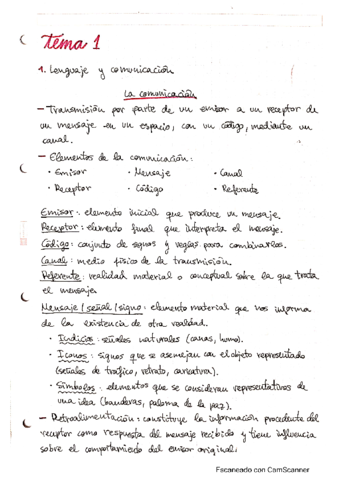 Tema 1
1. Lenguaje y comunicación
La comunicación
- Transmisión por parte de un emisor a un receptor de
un mensaje en un espacio, con un código, mediante un
canal.
- Elementos de la comunicación:
· Emisor · Mensaje · Canal
· Receptor · Código · Referente
Emisor: elemento inicial que produce un mensaje.
Receptor: elemento final que interpreta el mensaje.
Código: conjunto de signos y reglas para combinarlos.
Canal: medio físico de la transmisión.
Referente: realidad material o conceptual sobre la que trata
el mensaje.
Mensaje / señal / signo: elemento material que nos informa
de la existencia de otra realidad.
· Indicios: señales naturales (canas, humo).
· Iconos: signos que se asemejan con el objeto representado
(señales de tráfico, retrato, caricatura).
· Símbolos: elementos que se consideran representativos de
una idea (banderas, paloma de la paz).
- Retroalimentación: constituye la información procedente del
receptor como respuesta del mensaje recibido y tiene influencia
sobre el comportamiento del emisor original.
Escaneado con CamScanner